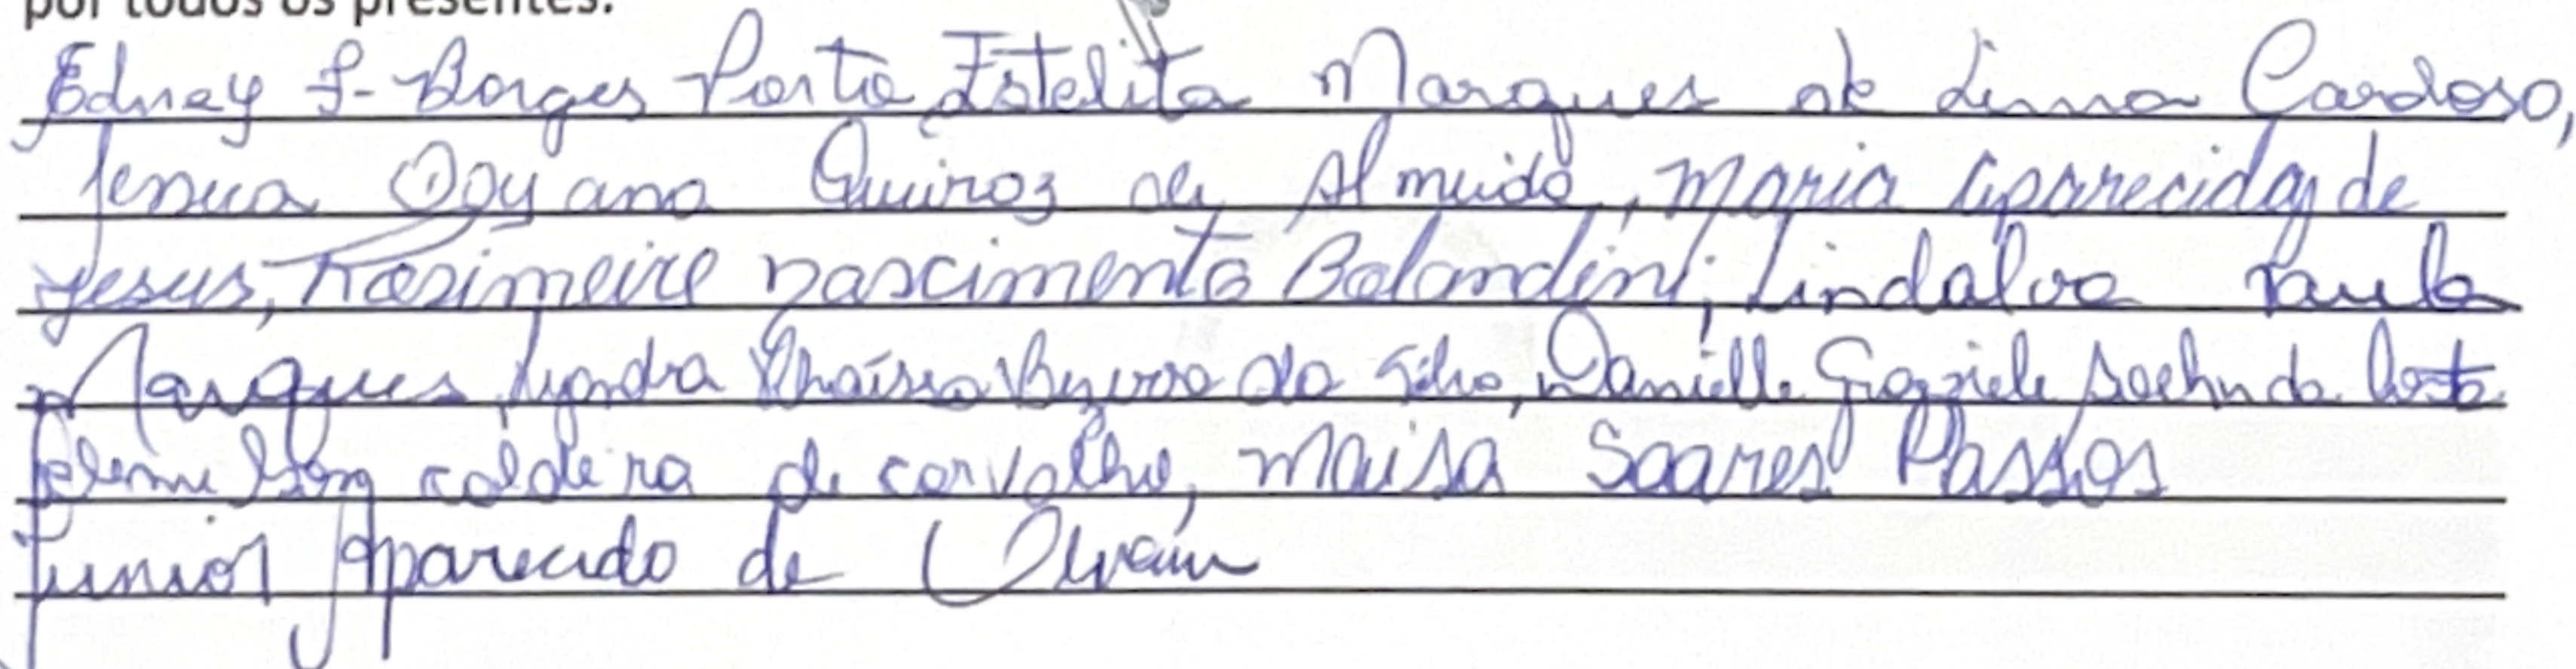 por todos os presentes.
Edney F. Borges Porto Estelita Marques de Lima Cardoso,
Dayana Queiroz de Almeida, Maria Aparecida de
Jesus, Rosimeire nascimento Balandini, Lindalva Paula
Marques, Lyandra Thaísa Bezerra da Silva, Danielle Graziele da Costa
caldeira de carvalho, Maisa Soares Passos
Junior Aparecido de Oliveira